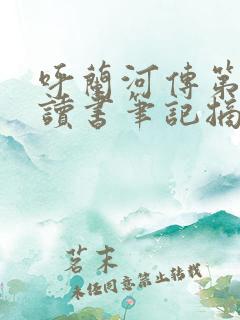 呼蘭河傳第
讀書筆記摘
茗末
未经同意禁止转载